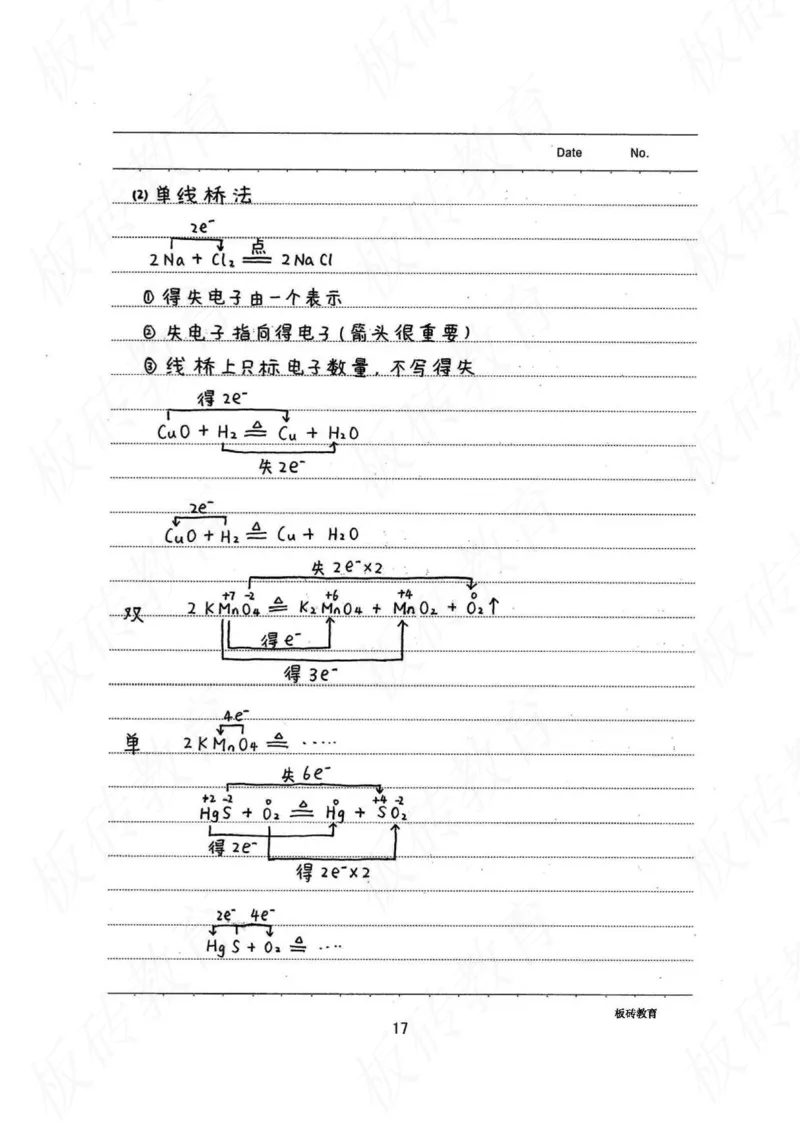 Date No.
(2) 单线桥法
2e⁻
2Na + Cl₂ 点 ══ 2NaCl
① 得失电子由一个表示
② 失电子指向得电子(箭头很重要)
③ 线桥上只标电子数量,不写得失
得 2e⁻
CuO + H₂ ≜ Cu + H₂O
失 2e⁻
2e⁻
CuO + H₂ ≜ Cu + H₂O
失 2e⁻×2
+7 -2 +6 +4 0
双 2KMnO₄ ≜ K₂MnO₄ + MnO₂ + O₂↑
得 e⁻
得 3e⁻
4e⁻
单 2KMnO₄ ≜ ·····
失 6e⁻
+2 -2 0 0 +4 -2
HgS + O₂ ≜ Hg + SO₂
得 2e⁻
得 2e⁻×2
2e⁻ 4e⁻
HgS + O₂ ≜ ····
板砖教育
17